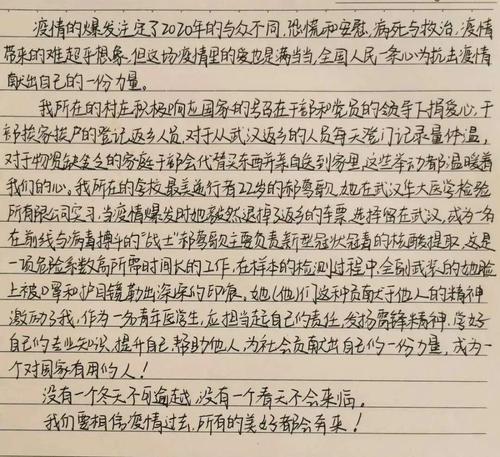 疫情的爆发注定了2020年的与众不同,恐慌和安慰,病死与救治,疫情
带来的难超乎想象,但这场疫情里的爱也是满当当,全国人民一条心为抗击疫情
献出自己的一份力量。
我所在的村庄积极响应国家的号召在干部和党员的领导下捐爱心,干
部挨家挨户的登记返乡人员,对于从武汉返乡的人员每天登门记录量体温,
对于物资缺乏的家庭干部会代替买东西并亲自送到家里,这些举动都温暖着
我们的心,我所在的学校最美逆行者22岁的郝莺歌,她在武汉华大医学检验
所有限公司实习,当疫情爆发时她毅然退掉了返乡的车票,选择留在武汉,成为一名
在前线与病毒搏斗的"战士"郝莺歌主要负责新型冠状病毒的核酸提取,这是
一项危险系数高所需时间长的工作,在样本的检测过程中,全副武装的她脸
上被口罩和护目镜勒出深深的印痕。她(他)们这种贡献于他人的精神
激励了我,作为一名青年医学生,应担当起自己的责任,发扬雷锋精神,学好
自己的专业知识,提升自己,帮助他人,为社会贡献出自己的一份力量,成为一
个对国家有用的人!
没有一个冬天不可逾越,没有一个春天不会来临。
我们要相信疫情过去,所有的美好都会再来!